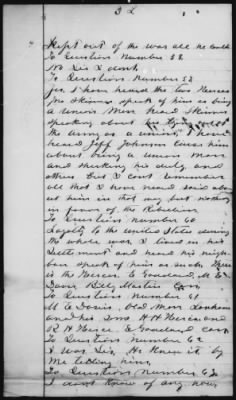 32
Kept out of the war all he could
To Question Number 52
No Sir I dont
To Question Number 53
yes I have heard the two Nerces
Mr Skinner speak of him as being
a Union Man heard Skinner
speaking about his
the army as a union, I have
heard Jeff Johnson curse him
about being a Union Man
and shirking his duty and
others but I cant remember
all that I have heard said abo
ut him in that way but nothing
in favor of the Rebellion
To Question Number 60
Loyalty to the United States during
the whole war, I lived in his
Settlement and heard his neigh-
bors speak of him as such. There
is the Nerces, E Goodland, M E
Davis Billy Martin
To Question Number 61
M E Davis, Old Man
and his Sons H H Nerce and
R H Nerce E Goodland
To Question Number 62
I was Sir, He knew it by
Me telling him
To Question Number 63
I dont know of any, now